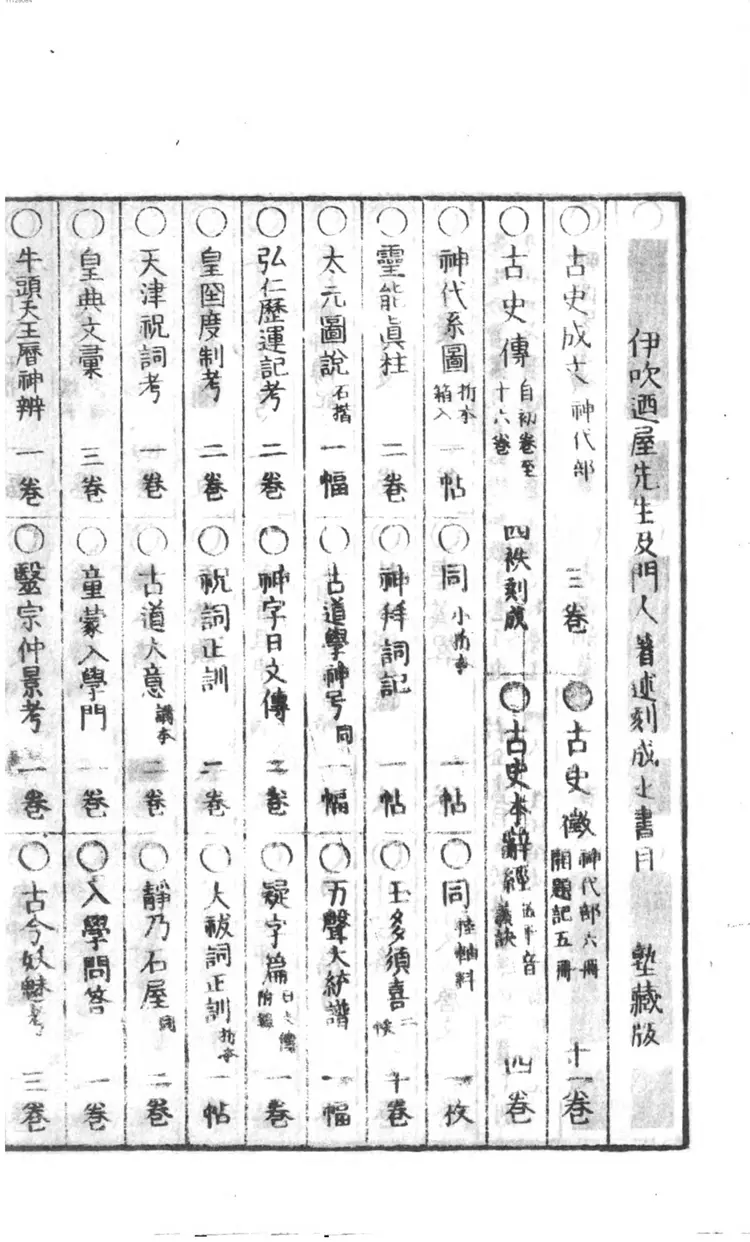 伊吹廼屋先生及門人著述刻成之書目 塾藏版
○古史成文 神代部 三卷 ●古史徴 神代部六冊 開題記五冊 十一卷
○古史傳 自初卷至十六卷 四帙刻成 ○古史本辭經 五十音義訣 四卷
○神代系圖 折本箱入 一帖 ○同 小折本 一帖 ○同 掛軸料 一枚
○靈能眞柱 二卷 ○神拜詞記 一帖 ○玉多須喜 二帙 十卷
○太元圖說 石摺 一幅 ○古道學神号 同 一幅 ○五聲大統譜 一幅
○弘仁歷運記考 二卷 ○神字日文傳 二卷 ○疑字篇 日文傳附錄 一卷
○皇國度制考 二卷 ○祝詞正訓 一卷 ○大祓詞正訓 折本 一帖
○天津祝詞考 一卷 ○古道大意 講本 二卷 ○靜乃石屋 同 二卷
○皇典文彙 三卷 ○童蒙入學門 一卷 ○入學問答 一卷
○牛頭天王曆神辨 一卷 ○醫宗仲景考 一卷 ○古今妖魅考 三卷